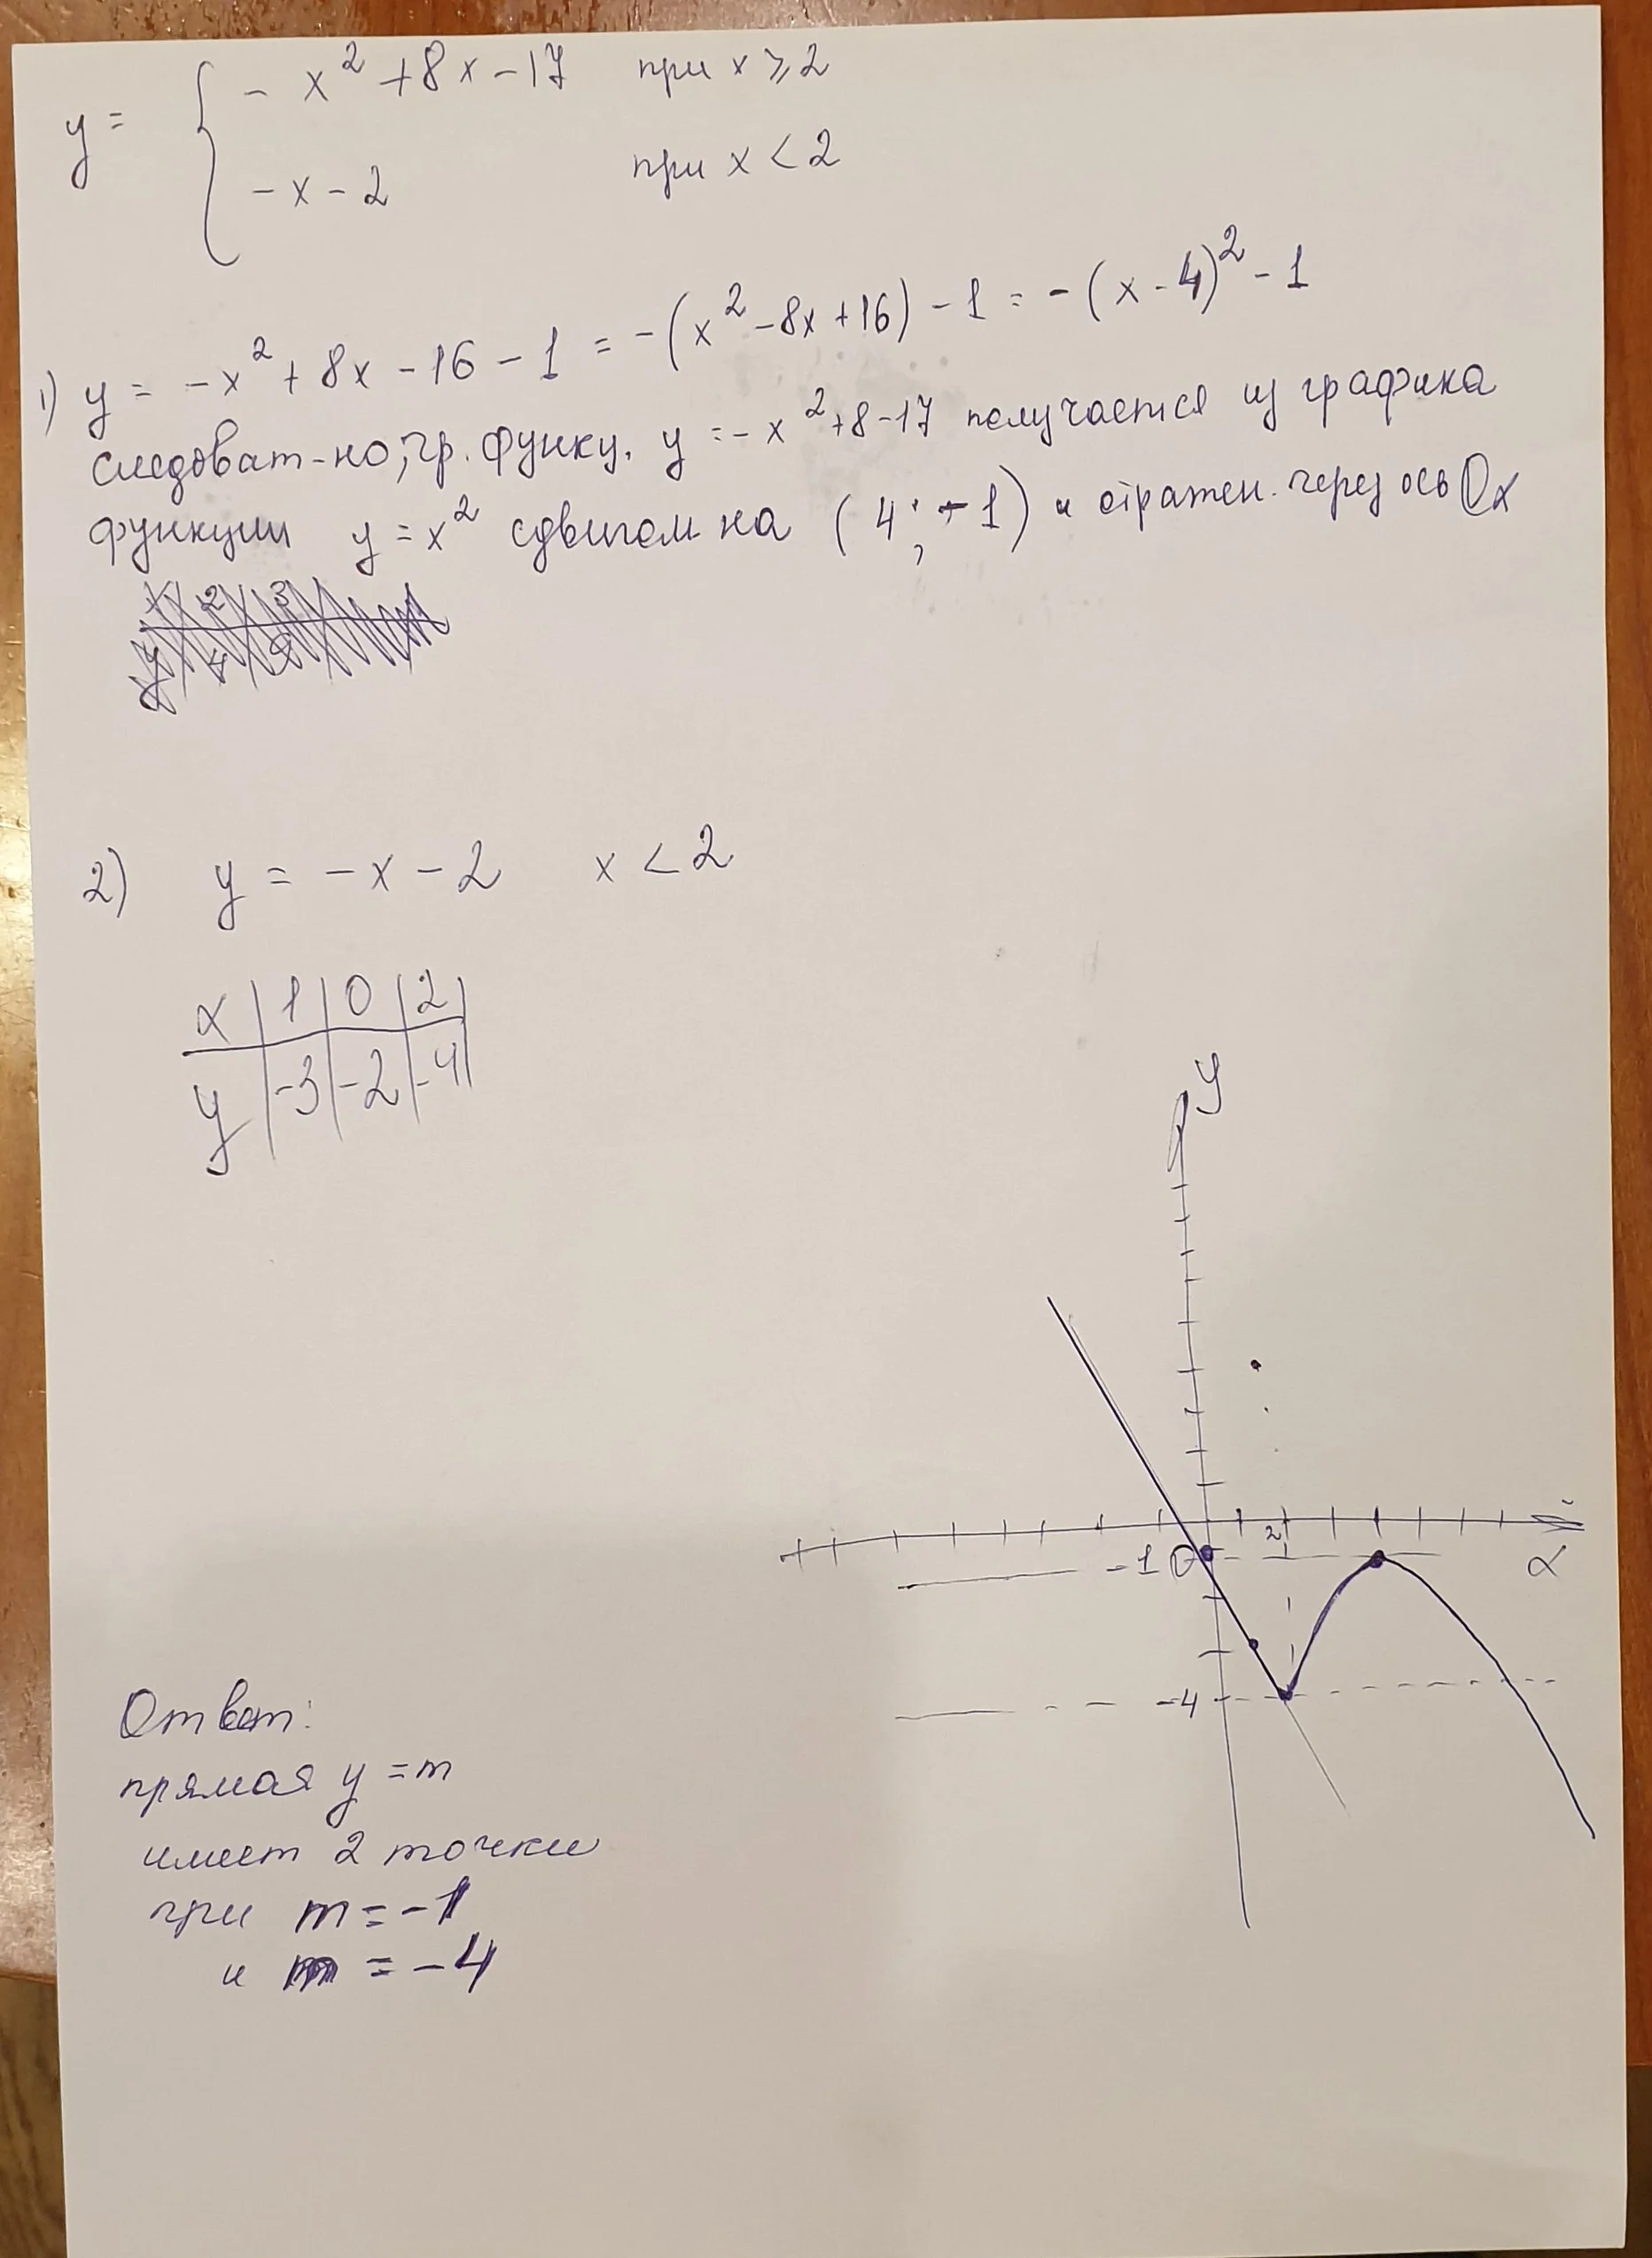 y = { - x² + 8x - 17 при x ⩾ 2
- x - 2 при x < 2
1) y = - x² + 8x - 16 - 1 = - (x² - 8x + 16) - 1 = - (x - 4)² - 1
следоват-но, гр. функц. y = - x² + 8 - 17 получается из графика
функции y = x² сдвигом на (4; -1) и отражен. через ось Ox
2) y = - x - 2 x < 2
x | 1 | 0 | 2
y | -3 | -2 | -4
y
2
-1 0 x
-4
Ответ:
прямая y = m
имеет 2 точки
при m = -1
и m = -4